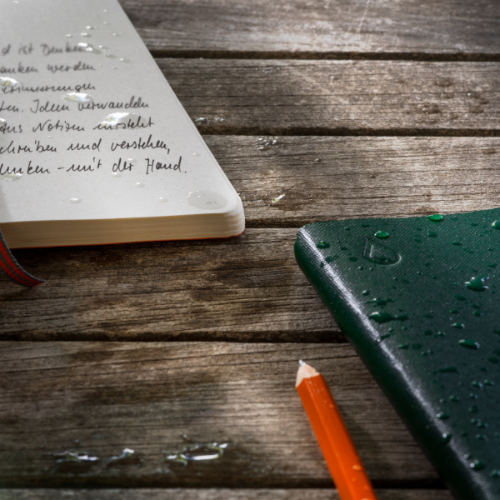 d ist Denken
anken werden
erinnerungen
ten. Ideen verwandeln
aus Notizen entsteht
chreiben und verstehen,
denken - mit der Hand.